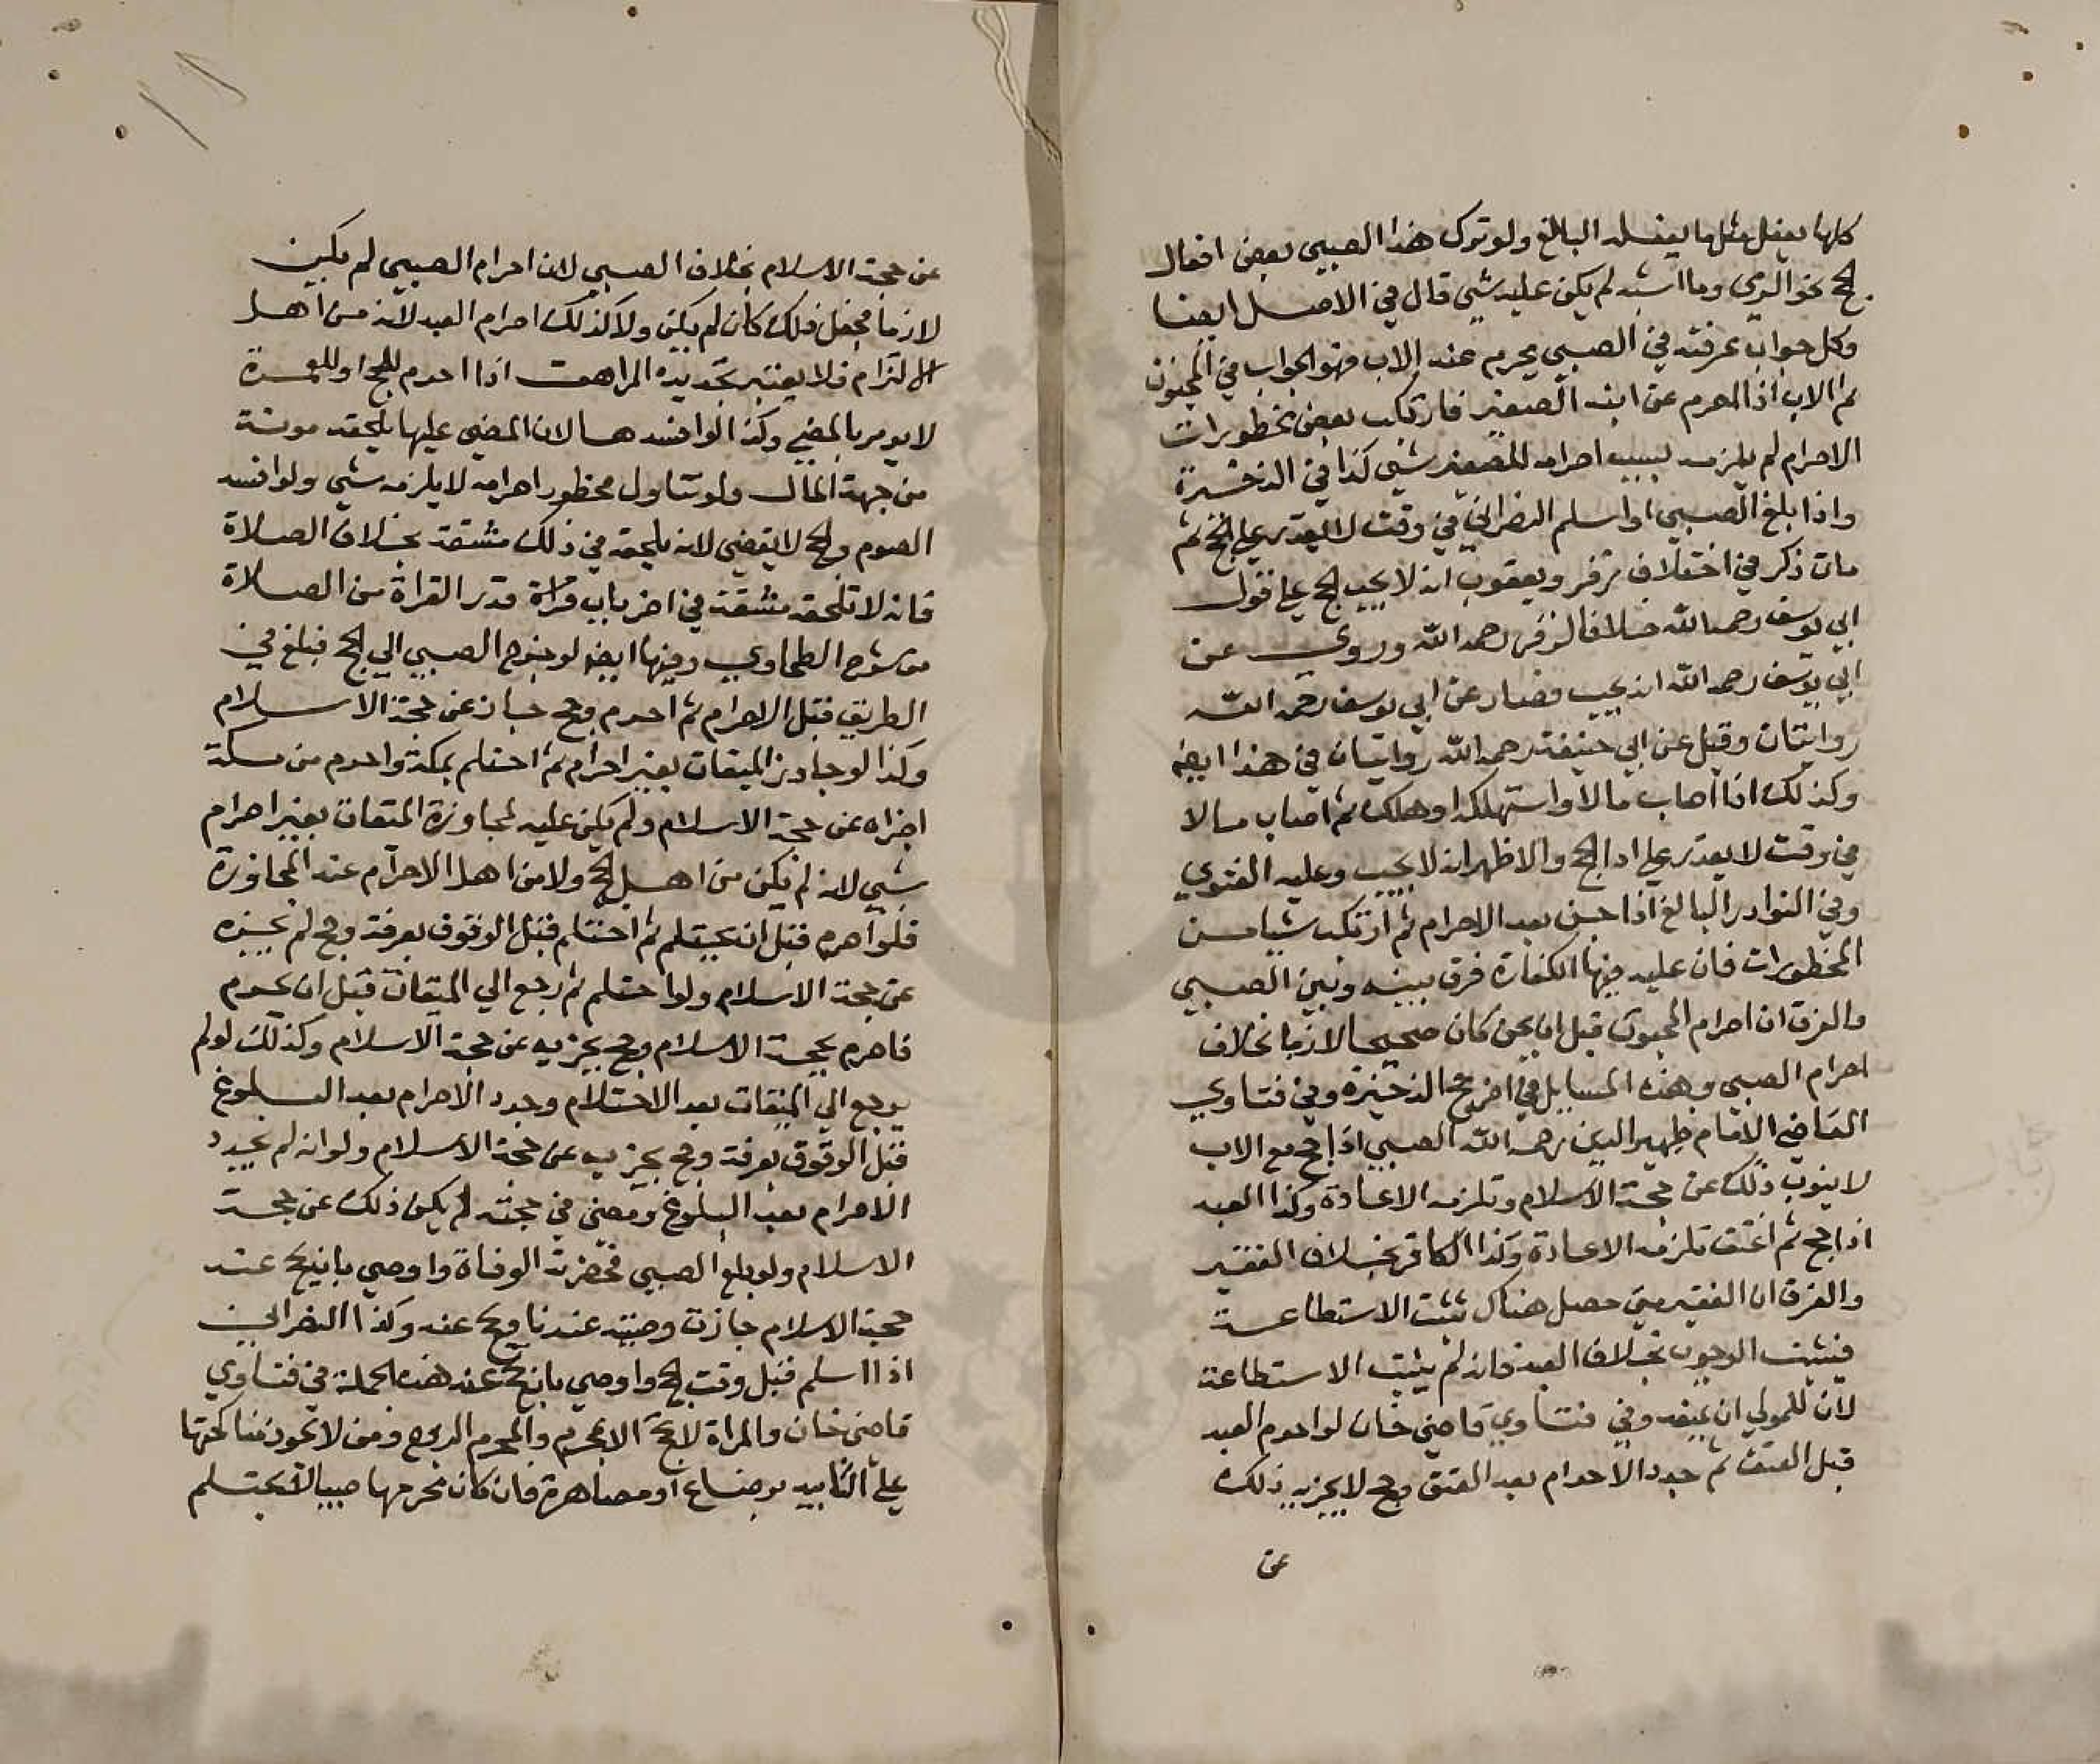 كلها يفعل مثل ما يفعله البالغ ولو ترك هذا الصبي بعض افعال
الحج نحو الرمي وما اشبه لم يكن عليه شي قال في الاصل ايضا
وكل جواب عرفته في الصبي يحرم عنه الاب فهو الجواب في المجنون
ثم الاب اذا احرم عن ابنه الصغير فارتكب بعض محظورات
الاحرام لم يلزمه بسبب احرامه للصغير شي كذا في الذخيرة
واذا بلغ الصبي او اسلم النصراني في وقت لا يقدر علي الحج ثم
مات ذكر في اختلاف زفر ويعقوب انه لا يجب الحج علي قول
ابي يوسف رحمه الله خلافا لزفر رحمه الله وروي عن
ابي يوسف رحمه الله انه يجب فصار عن ابي يوسف رحمه الله
روايتان وقيل عن ابي حنيفة رحمه الله روايتان في هذا ايضه
وكذلك اذا اصاب مالا واستهلكه او هلك ثم اصاب مالا
في وقت لا يقدر علي ادا الحج والاظهر انه لا يجب وعليه الفتوي
وفي النوادر البالغ اذا جن بعد الاحرام ثم ارتكب شيا من
المحظورات فان عليه فيها الكفارة فرق بينه وبين الصبي
والفرق ان احرام المجنون قبل ان يجن كان صحيحا لازما بخلاف
احرام الصبي وهذه المسايل في اخر حج الذخيرة وفي فتاوي
القاضي الامام ظهير الدين رحمه الله الصبي اذا حج مع الاب
لا ينوب ذلك عن حجة الاسلام وتلزمه الاعادة وكذا العبد
اذا حج ثم اعتق تلزمه الاعادة وكذا الكافر بخلاف الفقير
والفرق ان الفقير متي حصل هناك تثبت الاستطاعة
فيثبت الوجوب بخلاف العبد فانه لم يثبت الاستطاعة
لان للمولي ان يمنعه وفي فتاوي قاضي خان لو احرم العبد
قبل العتق ثم جدد الاحرام بعد العتق وحج لا يجزيه ذلك
عن
عن حجة الاسلام بخلاف الصبي لان احرام الصبي لم يكن
لازما فجعل ذلك كان لم يكن ولا كذلك احرام العبد لانه من اهل
الالتزام فلا يعتبر تجديده المراهق اذا احرم للحج او للعمرة
لا يومر بالمضي وكذا لو افسدها لان المضي عليها يلحقه مونة
من جهة المال ولو تناول محظور احرامه لا يلزمه شي ولو افسد
الصوم والحج لا يقضي لانه يلحقه في ذلك مشقة بخلاف الصلاة
فانه لا تلحقه مشقة في اخر باب قراة قدر القراة من الصلاة
من شرح الطحاوي وفيها ايضه لو خرج الصبي الي الحج فبلغ في
الطريق قبل الاحرام ثم احرم وحج جاز عن حجة الاسلام
وكذا لو جاوز الميقات بغير احرام ثم احتلم بمكة واحرم من مكة
اجزاه عن حجة الاسلام ولم يكن عليه لمجاوزة الميقات بغير احرام
شي لانه لم يكن من اهل الحج ولا من اهل الاحرام عند المجاوزة
فلو احرم قبل ان يحتلم ثم احتلم قبل الوقوف بعرفة وحج لم يجزه
عن حجة الاسلام ولو احتلم ثم رجع الي الميقات قبل ان يحرم
فاحرم بحجة الاسلام وحج يجزيه عن حجة الاسلام وكذلك لو لم
يرجع الي الميقات بعد الاحتلام وجدد الاحرام بعد البلوغ
قبل الوقوف بعرفة وحج يجزيه عن حجة الاسلام ولو انه لم يجدد
الاحرام بعد البلوغ ومضي في حجته لم يكن ذلك عن حجة
الاسلام ولو بلغ الصبي فحضرته الوفاة واوصي بان يحج عنه
حجة الاسلام جازت وصيته عندنا وحج عنه وكذا النصراني
اذا اسلم قبل وقت الحج واوصي بان يحج عنه هذه الجملة في فتاوي
قاضي خان والمراة لا تحج الا بمحرم والمحرم الزوج ومن لا تجوز مناكحتها
علي التابيد برضاع او مصاهرة فان كان محرمها صبيا لا يحتلم